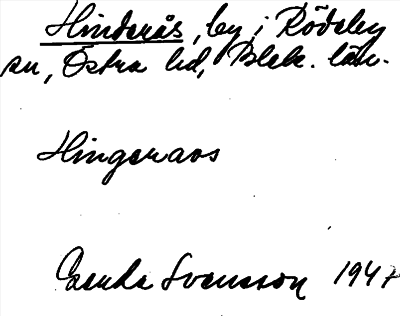 Hinderås, by i Rödeby
sn, Östra hd, Blek. län.
Hingeraos
Svensson 1947